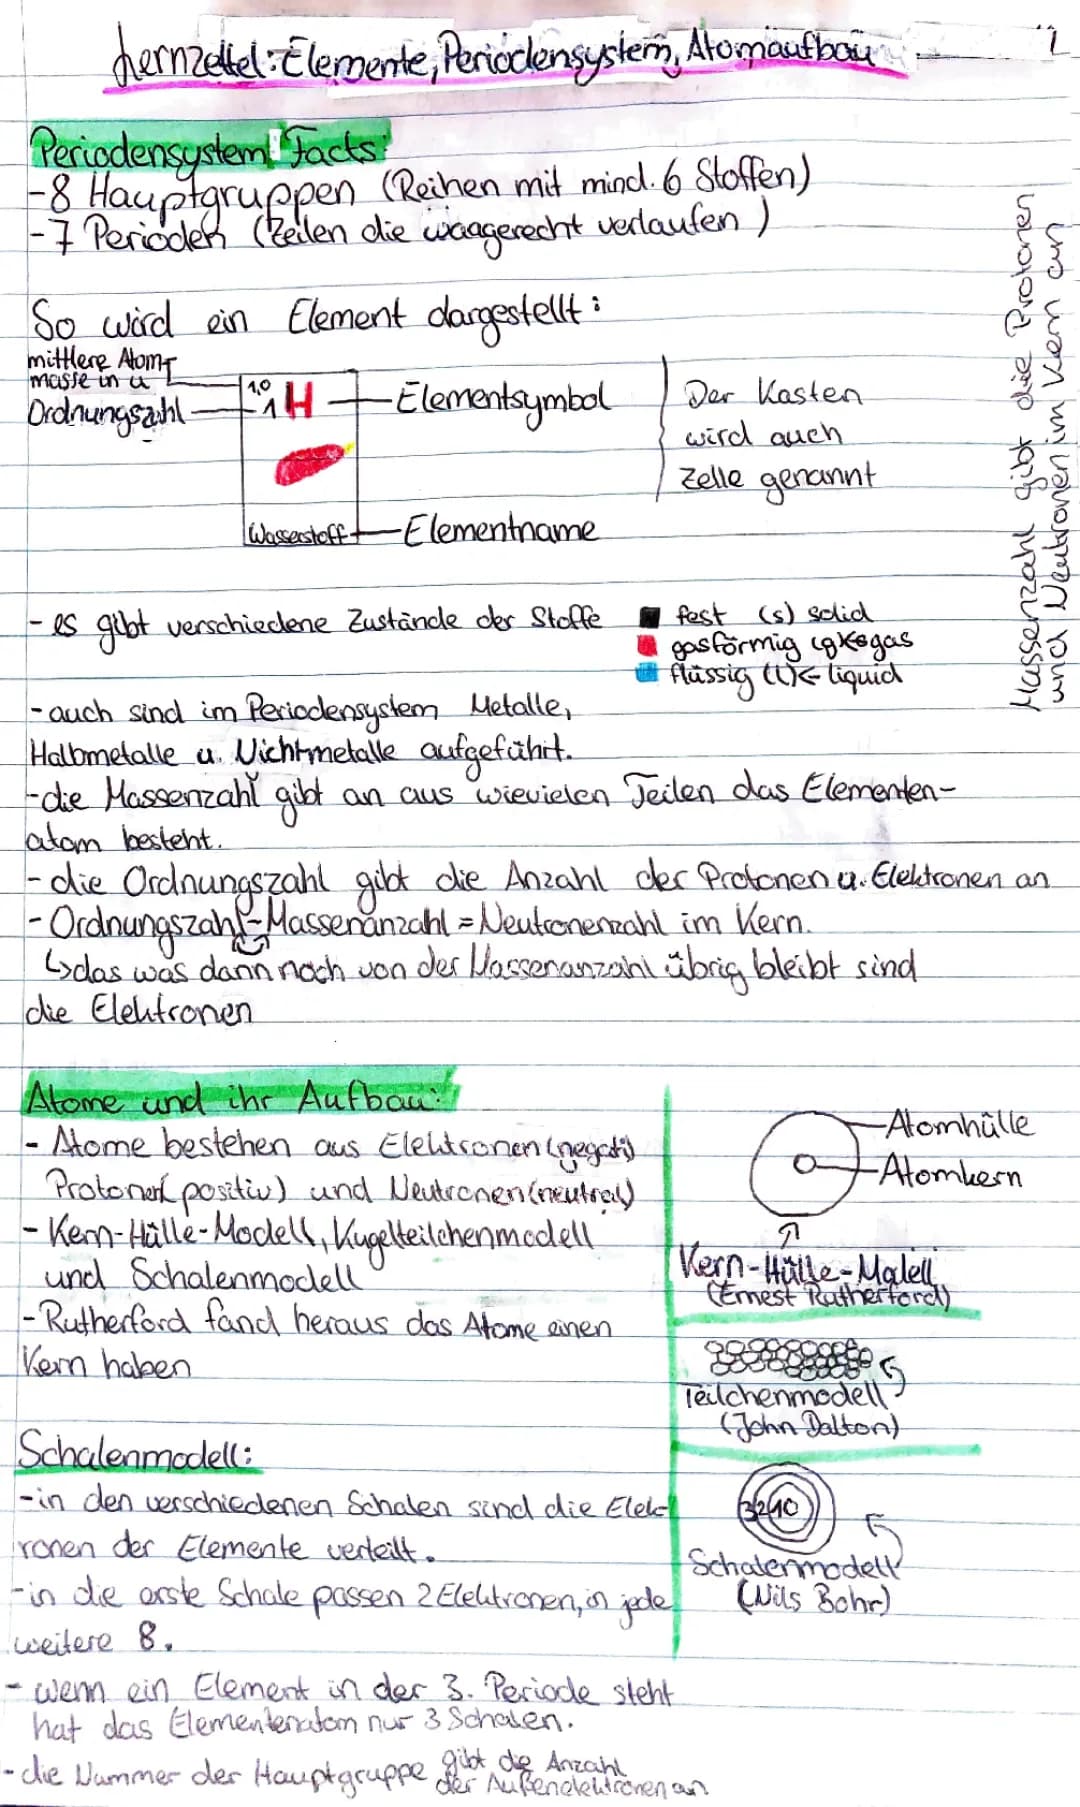 Lernzettel: Elemente, Periodensystem, Atomaufbau
1
Periodensystem Facts:
-8 Hauptgruppen (Reihen mit mind. 6 Stoffen)
-7 Perioden (Zeilen die waagerecht verlaufen)
So wird ein Element dargestellt:
mittlere Atom-
masse in u
Ordnungszahl
1,0
1H
Elementsymbol
Wasserstoff
Elementname
Der Kasten
wird auch
Zelle genannt
Massenzahl gibt die Protonen
und Neutronen im Kern an
- es gibt verschiedene Zustände der Stoffe
fest (s) solid
gasförmig (g)←gas
flüssig (l)← liquid
-auch sind im Periodensystem Metalle,
Halbmetalle u. Nichtmetalle aufgeführt.
-die Massenzahl gibt an aus wievielen Teilen das Elementen-
atom besteht.
- die Ordnungszahl gibt die Anzahl der Protonen u. Elektronen an
- Ordnungszahl-Massenanzahl = Neutronenzahl im Kern.
↳das was dann noch von der Massenanzahl übrig bleibt sind
die Elektronen
Atome und ihr Aufbau:
- Atome bestehen aus Elektronen (negativ)
Protonen (positiv) und Neutronen (neutral)
- Kern-Hülle-Modell, Kugelteilchenmodell
und Schalenmodell
-Rutherford fand heraus das Atome einen
Kern haben
Atomhülle
Atomkern
Kern-Hülle-Modell
(Ernest Rutherford)
Teilchenmodell
(John Dalton)
Schalenmodell:
-in den verschiedenen Schalen sind die Elek-
ronen der Elemente verteilt.
-in die erste Schale passen 2 Elektronen, in jede
weitere 8.
Schalenmodell
(Nils Bohr)
- wenn ein Element in der 3. Periode steht
hat das Elementenatom nur 3 Schalen.
- die Nummer der Hauptgruppe gibt die Anzahl
der Außenelektronen an